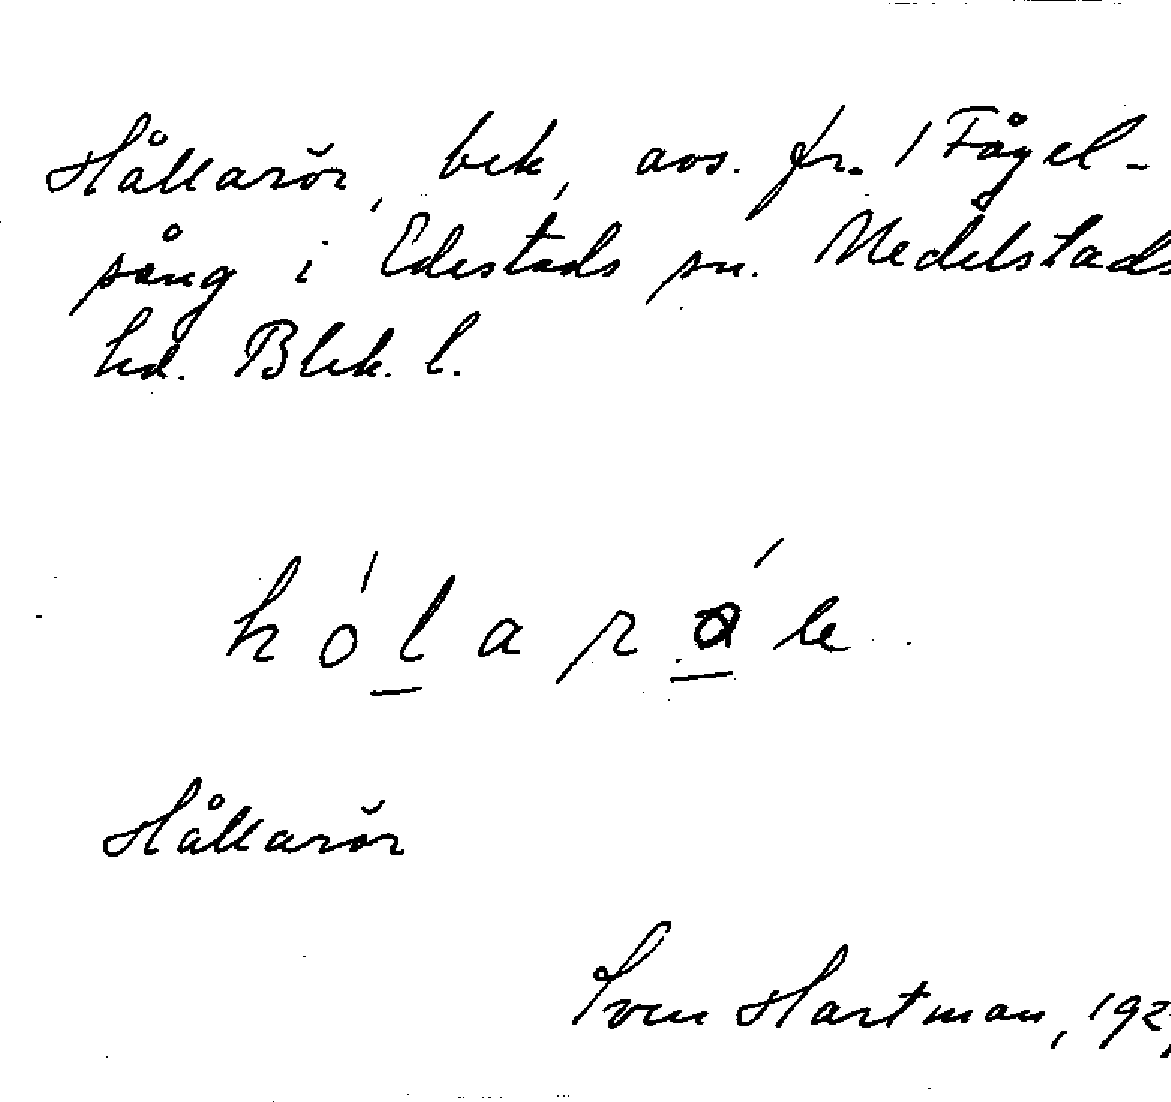 Hållarör, bek, avs. fr. 1 Fågel-
sång i Edestads sn. Medelstads
hd. Blek. l.
Hållarör
Sven Hartman, 192